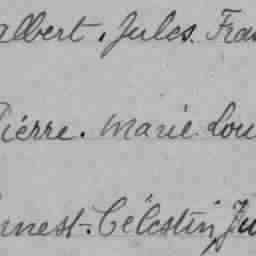 albert. Jules. Fra
Piérre. Marie Lou
rnest. Célestin Ju